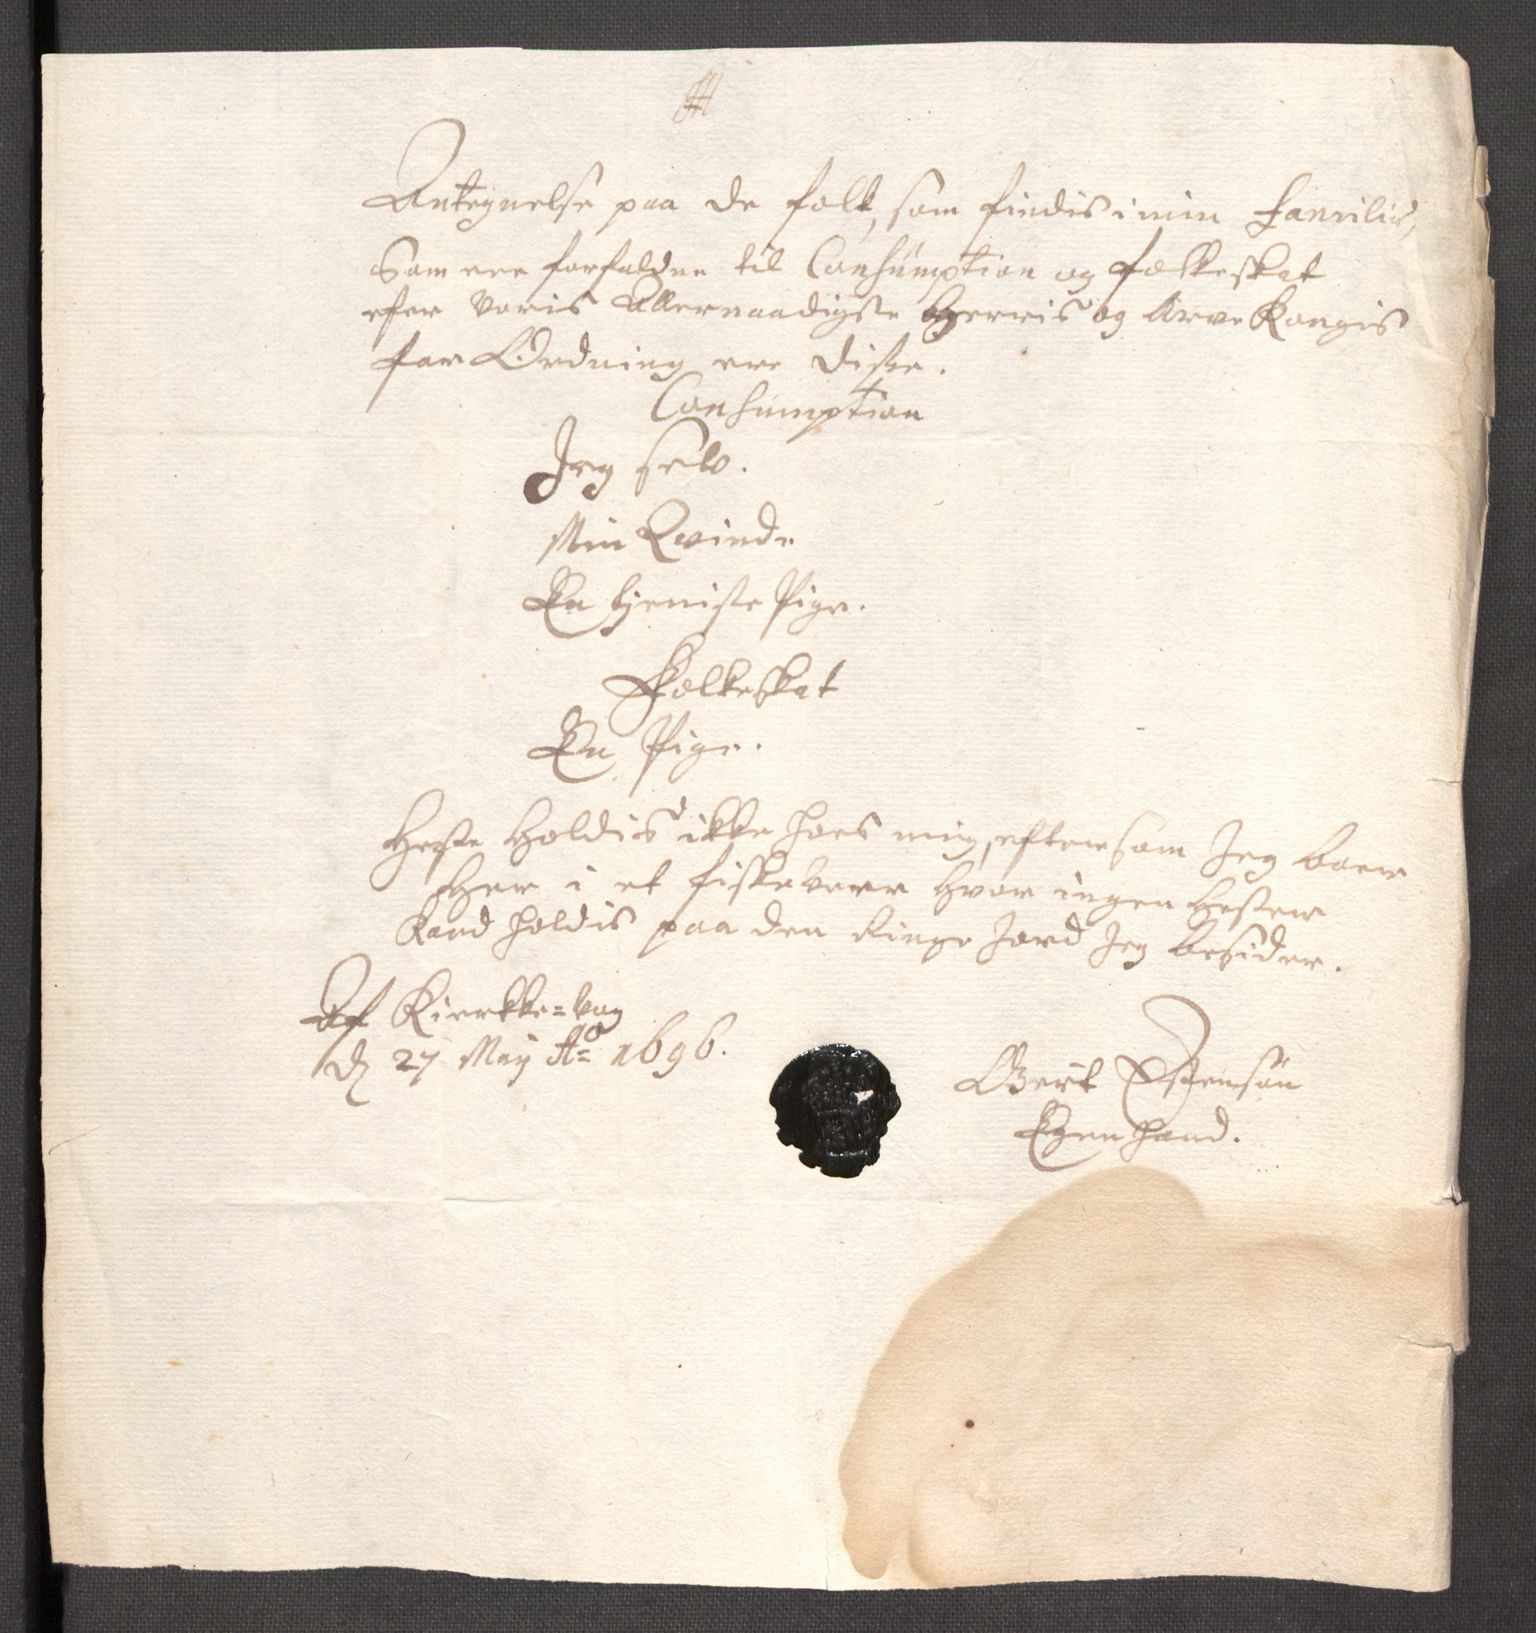 Antegnelse paa de folk, som findis i min familie,
Som ere forfalden til Consumption og folkeskat
efter Voris Allernaadigste Herris og Arve Kongis
for Ordning ere disse.
Consumption
Jeg selv.
Min Qvinde
En tjeniste Pige.
Folkeskat
En Pige.
Heste Holdis ikke hoes mig, eftersom Jeg boer
Her i et fiskevær Hvor ingen Hester
Kand holdis paa den Ringe Jord Jeg besider.
Af Kierkke=vog
d 27 Maij Ao 1696.
Giert
Egen haand.